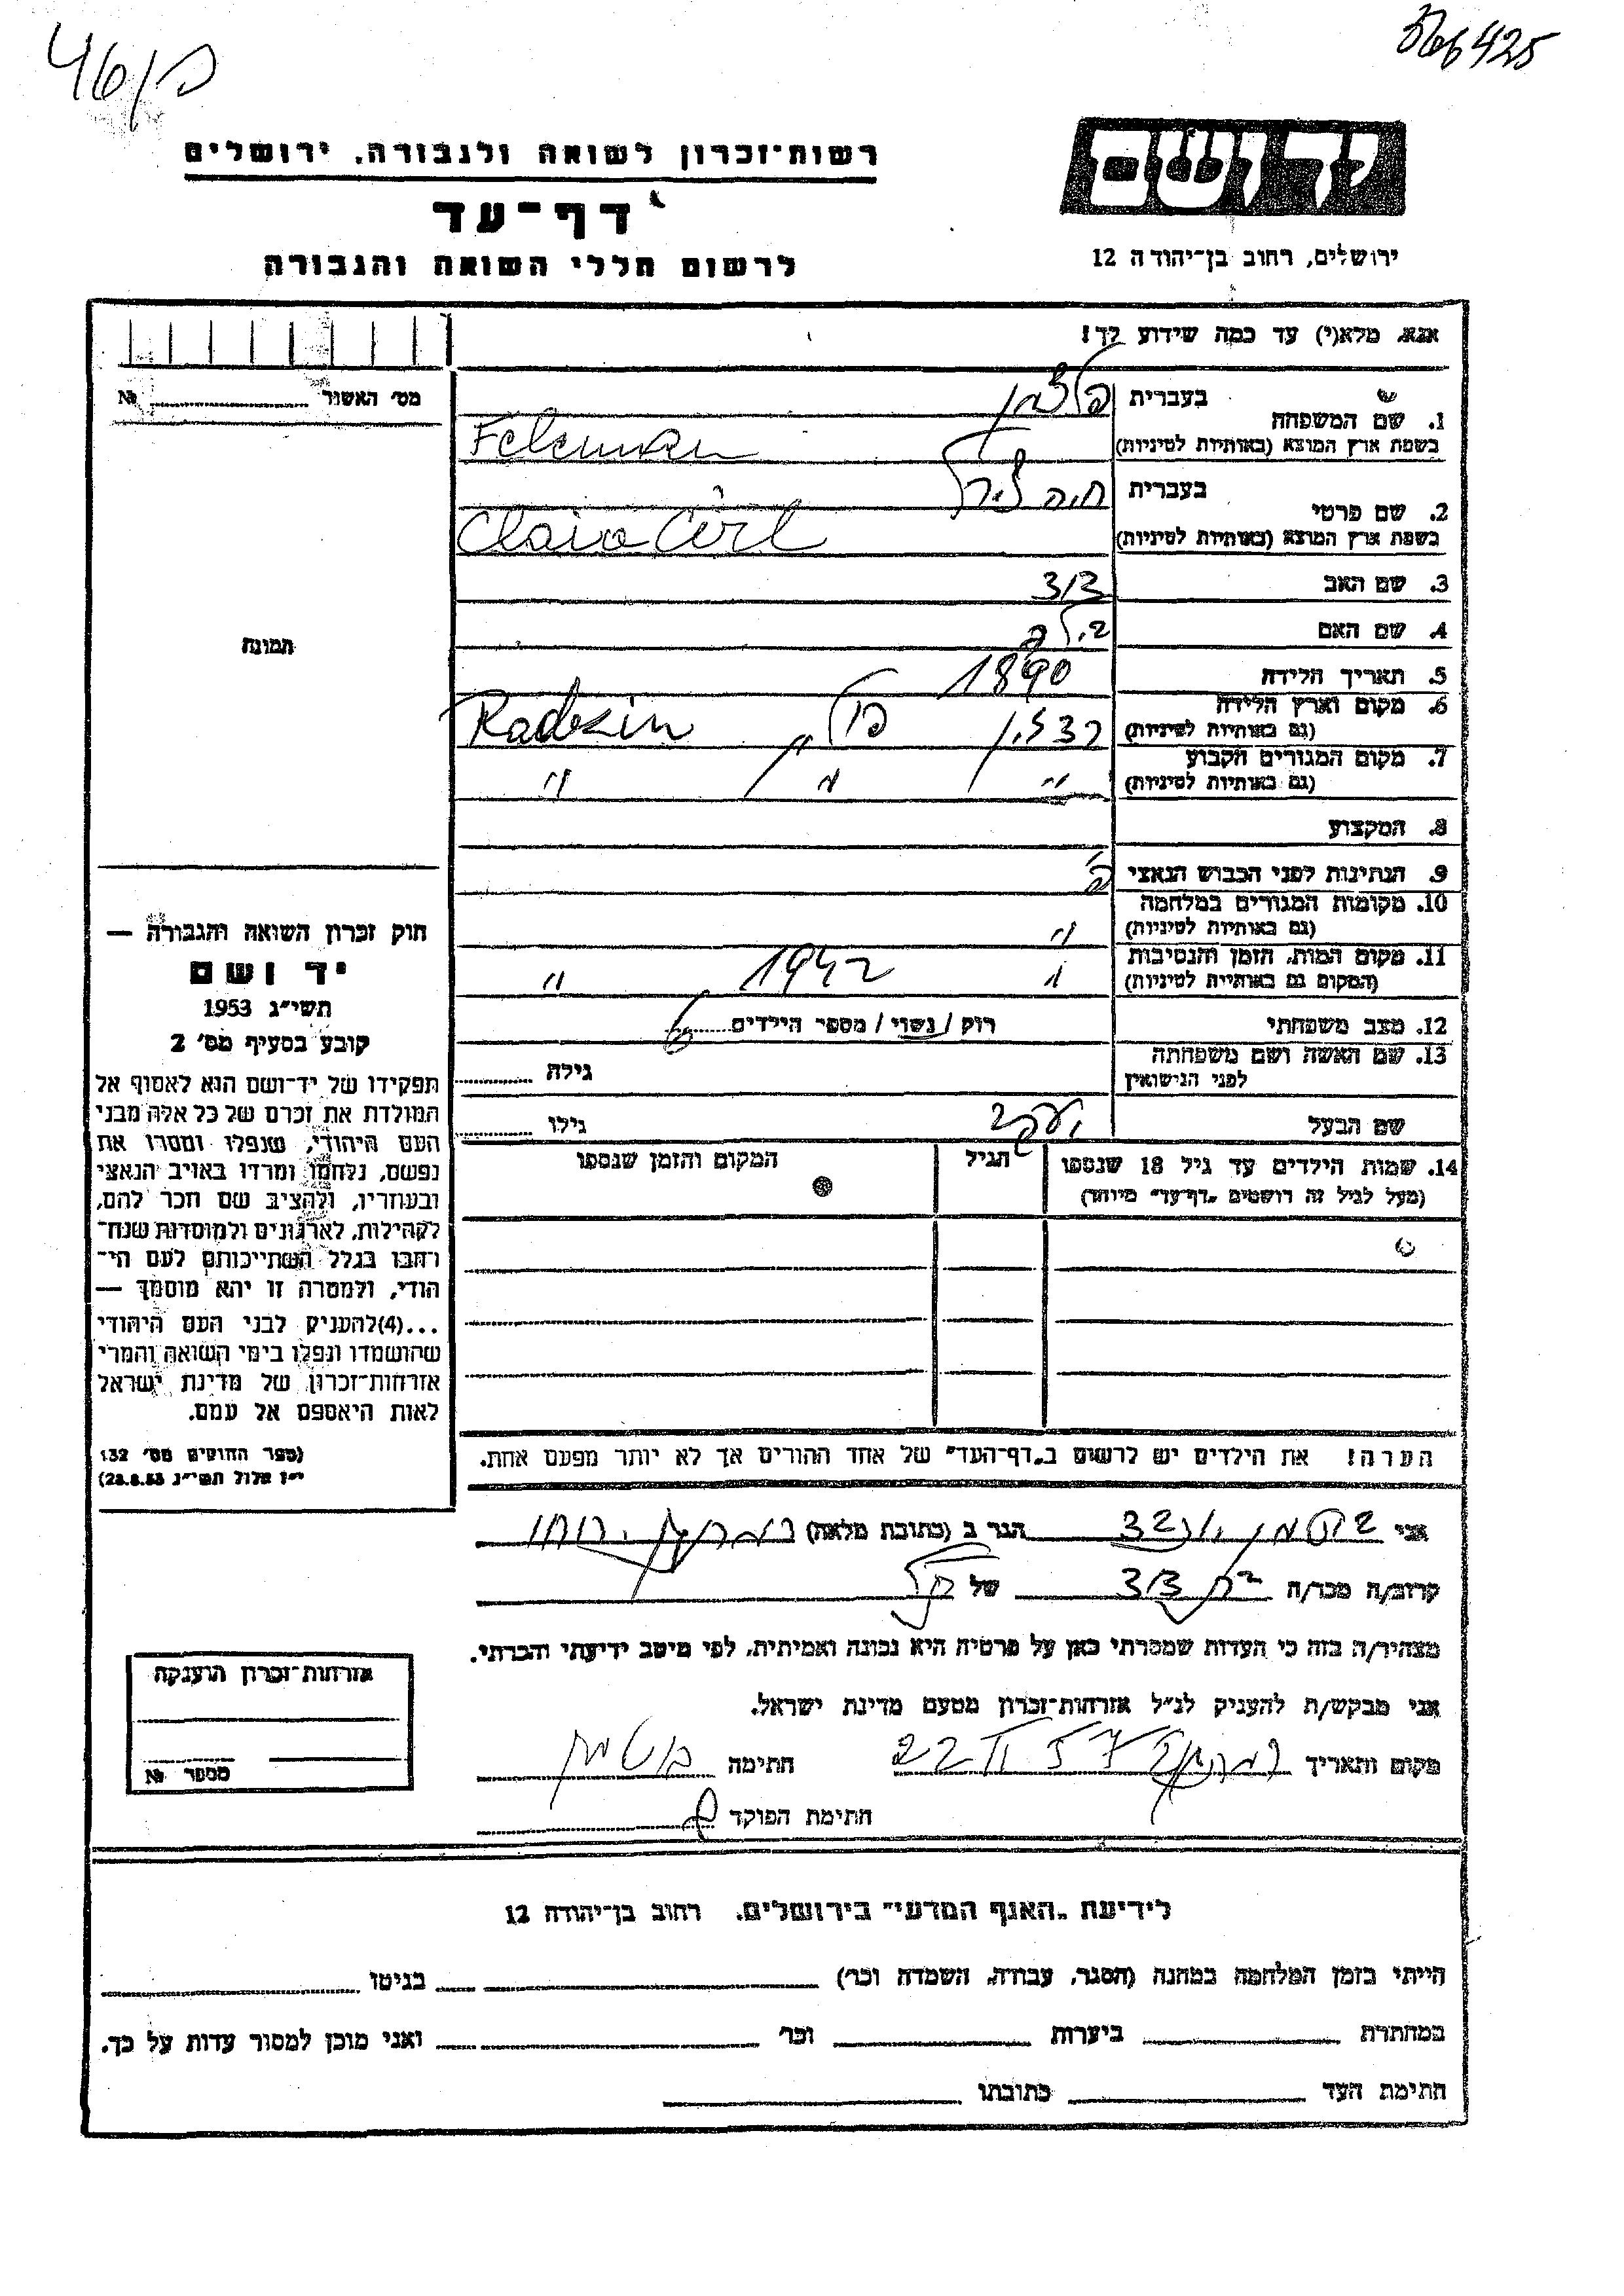 366425
46/פ
רשות־זכרון לשואה ולגבורה, ירושלים
דף־עד
לרשום חללי השואה והגבורה
יד ושם
ירושלים, רחוב בן־יהודה 12
אנא, מלא(י) עד כמה שידוע לך!
מס׳ האשור №
1. שם המשפחה
בעברית
בשפת ארץ המוצא (באותיות לטיניות) Felcman
2. שם פרטי
בעברית חיה צירל
בשפת ארץ המוצא (באותיות לטיניות) Chaia Cirl
3. שם האב
4. שם האם
5. תאריך הלידה 1890
6. מקום וארץ הלידה
(גם באותיות לטיניות) רדזין פולין Radzin
7. מקום המגורים הקבוע
(גם באותיות לטיניות) " " "
8. המקצוע
9. הנתינות לפני הכבוש הנאצי פ׳
10. מקומות המגורים במלחמה
(גם באותיות לטיניות) "
11. מקום המות, הזמן והנסיבות
(המקום גם באותיות לטיניות) " 1942 "
12. מצב משפחתי רוק / נשוי / מספר הילדים 6
13. שם האשה ושם משפחתה
לפני הנישואין גילה
שם הבעל יעקב גילו
14. שמות הילדים עד גיל 18 שנספו הגיל המקום והזמן שנספו
(מעל לגיל זה רושמים „דף־עד״ מיוחד)
הערה! את הילדים יש לרשום ב„דף־העד״ של אחד ההורים אך לא יותר מפעם אחת.
תמונה
חוק זכרון השואה והגבורה —
יד ושם
תשי״ג 1953
קובע בסעיף מס׳ 2
תפקידו של יד־ושם הוא לאסוף אל
המולדת את זכרם של כל אלה מבני
העם היהודי, שנפלו ומסרו את
נפשם, נלחמו ומרדו באויב הנאצי
ובעוזריו, ולהציב שם וזכר להם,
לקהילות, לארגונים ולמוסדות שנח־
רחבו בגלל השתייכותם לעם הי־
הודי, ולמטרה זו יהא מוסמך —
...(4)להעניק לבני העם היהודי
שהושמדו ונפלו בימי השואה והמרי
אזרחות־זכרון של מדינת ישראל
לאות היאספם אל עמם.
(ספר החוקים מס׳ 132
י״ז אלול תשי״ג 28.8.53)
אני הגר ב (כתובת מלאה)
קרוב/ה מכר/ה של
מצהיר/ה בזה כי העדות שמסרתי כאן על פרטיה היא נכונה ואמיתית, לפי מיטב ידיעתי והכרתי.
אני מבקש/ת להעניק לנ״ל אזרחות־זכרון מטעם מדינת ישראל.
מקום ותאריך 22 II 57 חתימה
חתימת הפוקד
אזרחות־זכרון הוענקה
מספר №
לידיעת „האגף המדעי״ בירושלים, רחוב בן־יהודה 12
הייתי בזמן המלחמה במחנה (הסגר, עבודה, השמדה וכו׳) בגיטו
במחתרת ביערות וכו׳ ואני מוכן למסור עדות על כך.
חתימת העד כתובתו